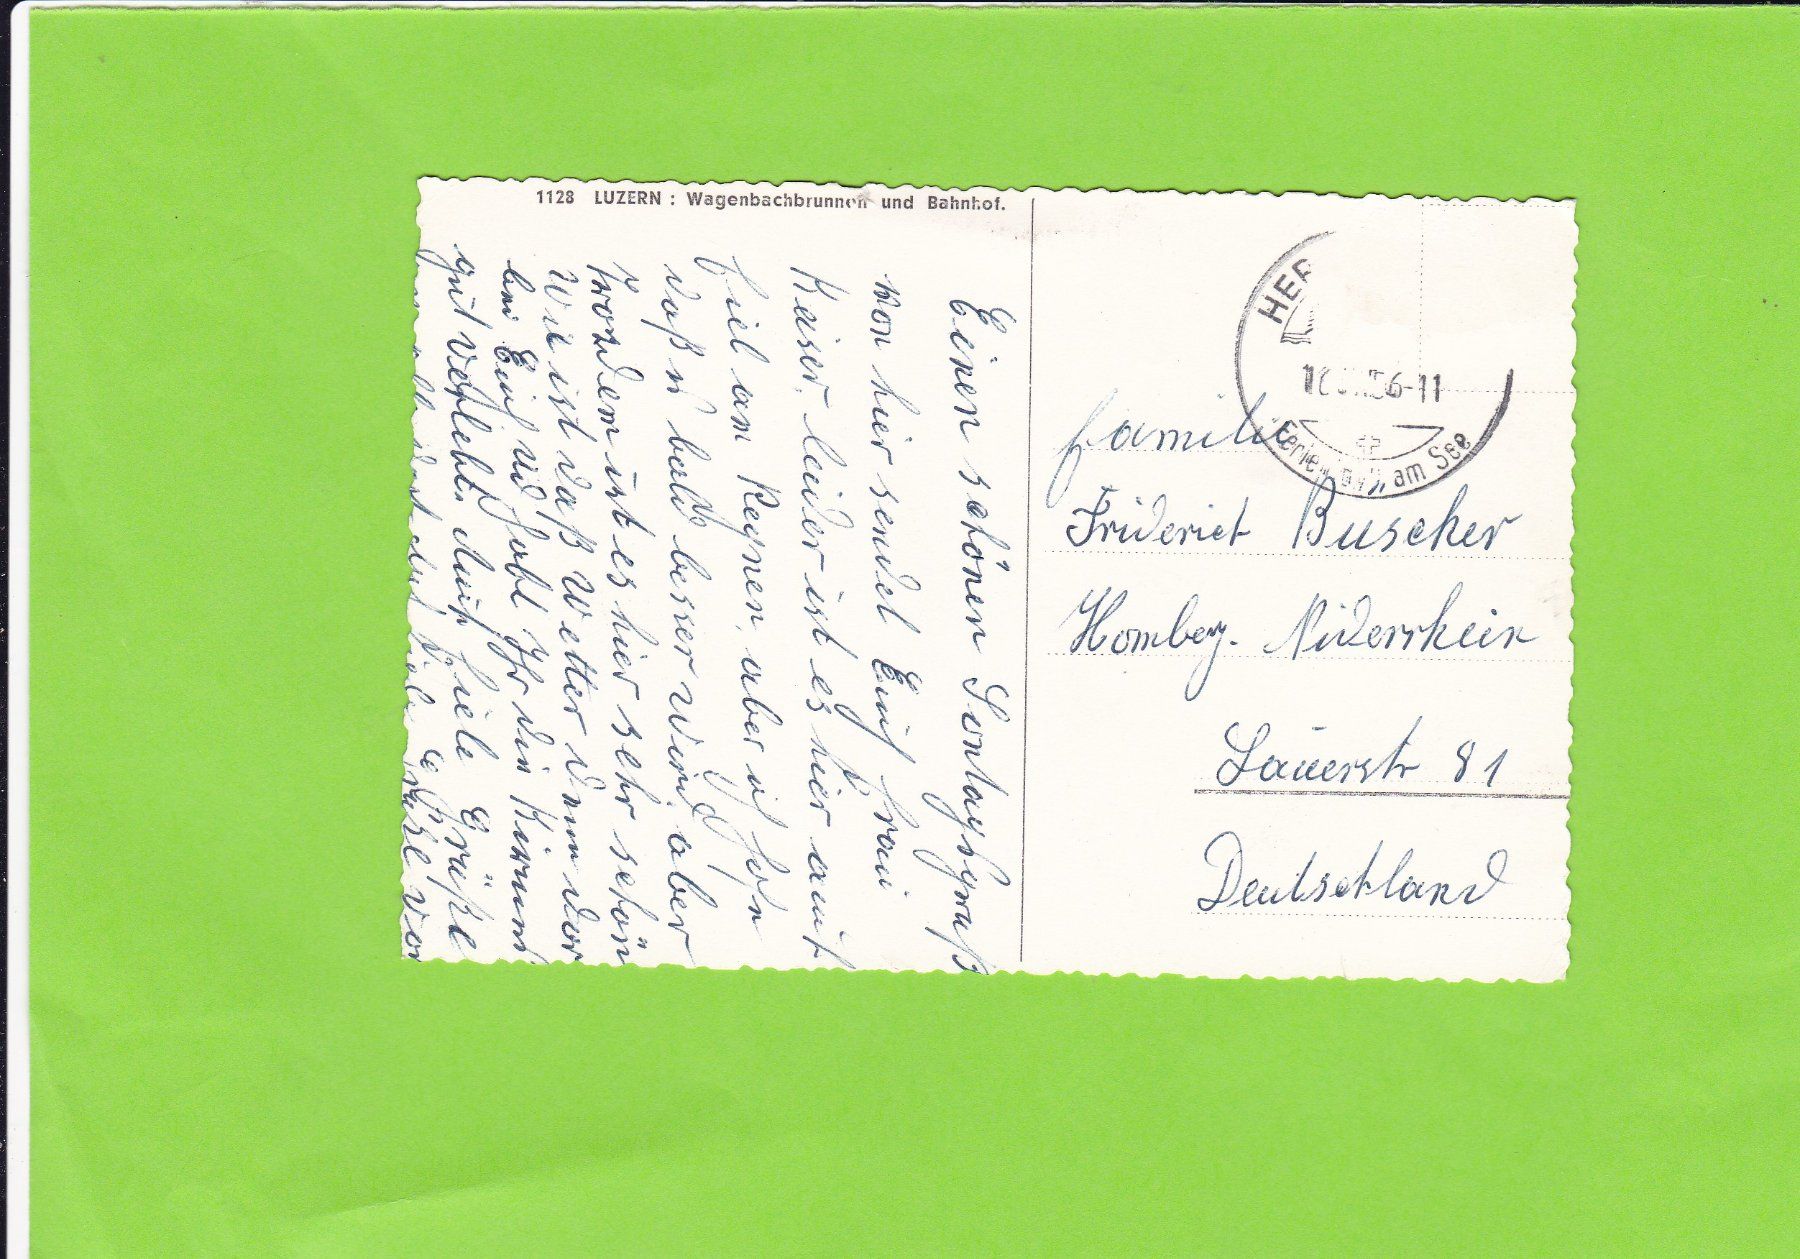 1128 LUZERN : Wagenbachbrunnen und Bahnhof.
Einen schönen Sontagsgruß
von hier sendet Euch frau
Kaiser, leider ist es hier auch
fiel am Regnen, aber ich hofe
daß es bald besser wird, aber
trozdem ist es hier sehr schön
Wie ist daß Wetter denn dor
bei Euch und habt Ihr die Kirmes
gut verlebt. Auch fiele Grüße
Grüße von
HER
56-11
Ferien am See
Familie
Friderich Buscher
Homberg. Niderrhein
Lauerstr 81
Deutschland